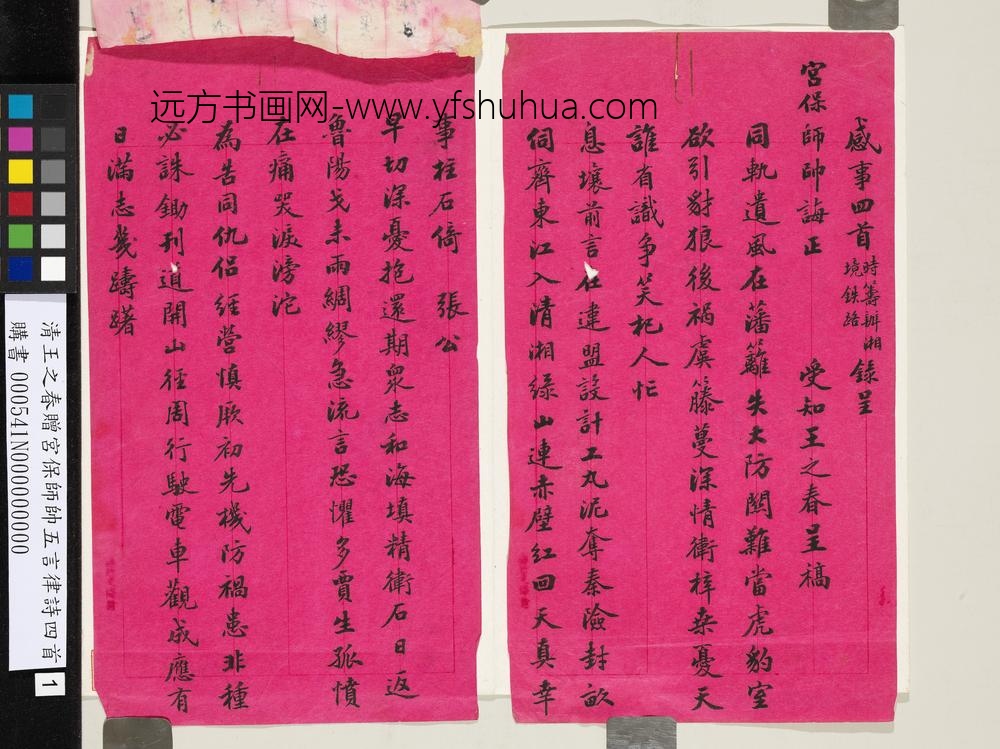 远方书画网-www.yfshuhua.com
感事四首 時籌辦湘境鉄路 錄呈
宮保師帥誨正 受知王之春呈稿
同軌遺風在藩籬失大防關難當虎豹室
欲引豺狼後禍虞籐蔓深情衛梓桑憂天
誰有識爭笑杞人忙
息壤前言在違盟設計工丸泥奪秦險封畝
伺齊東江入清湘綠山連赤壁紅回天真幸
事柱石倚 張公
早切深憂抱還期衆志和海填精衛石日返
魯陽戈未雨綢繆急流言恐懼多賈生孤憤
在痛哭淚滂沱
為告同仇侶經營慎厥初先機防禍患非種
必誅鋤刊道開山徑周行駛電車觀成應有
日滿志幾躊躇
清王之春贈宮保師帥五言律詩四首
購書 000541N000000000
1